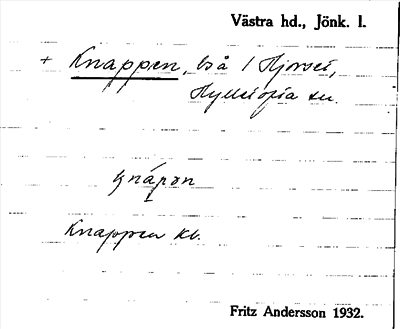 Västra hd., Jönk. l.
+ Knappen, bså / Hjorset,
Hylletofta sn.
knápən
Knappen kb.
Fritz Andersson 1932.